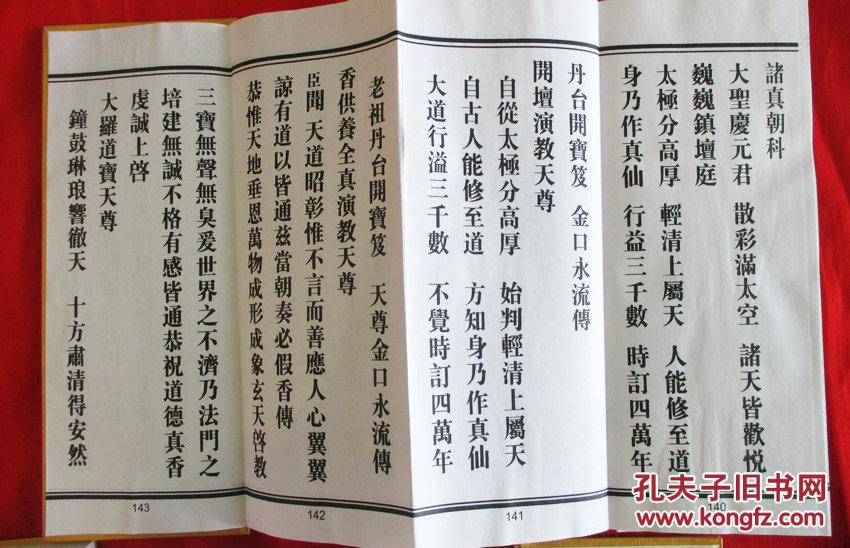 諸真朝科
大聖慶元君 散彩滿太空 諸天皆歡悦
巍巍鎮壇庭
太極分高厚 輕清上屬天 人能修至道
身乃作真仙 行益三千數 時訂四萬年
丹台開寶笈 金口永流傳
開壇演教天尊
自從太極分高厚 始判輕清上屬天
自古人能修至道 方知身乃作真仙
大道行溢三千數 不覺時訂四萬年
老祖丹台開寶笈 天尊金口永流傳
香供養全真演教天尊
臣聞 天道昭彰惟不言而善應人心翼翼
諒有道以皆通茲當朝奏必假香傳
恭惟天地垂恩萬物成形成象玄天啓教
三寶無聲無臭爰世界之不濟乃法門之
培建無誠不格有感皆通恭祝道德真香
虔誠上啓
大羅道寶天尊
鐘鼓琳琅響徹天 十方肅清得安然
140
141
142
143
孔夫子旧书网
www.kongfz.com